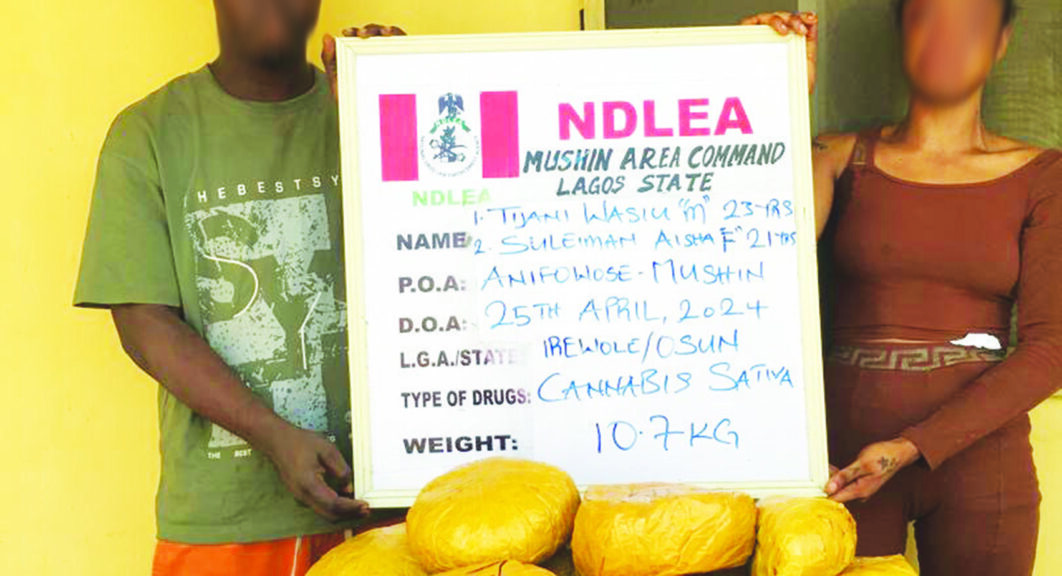 NDLEA
MUSHIN AREA COMMAND
LAGOS STATE
NDLEA
NAME: 1. TIJANI WASIU "M" 23-YRS
2. SULEIMAN AISHA "F" 21YRS
P.O.A: ANIFOWOSE-MUSHIN
D.O.A: 25TH APRIL, 2024
L.G.A./STATE: IREWOLE/OSUN
TYPE OF DRUGS: CANNABIS SATIVA
WEIGHT: 10.7KG
THEBESTSY
SY
THE BEST